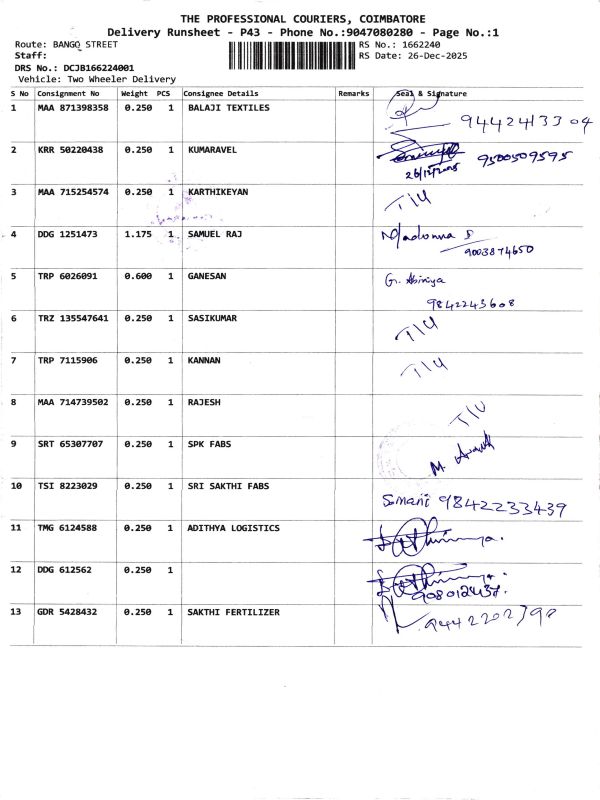 THE PROFESSIONAL COURIERS, COIMBATORE
Delivery Runsheet - P43 - Phone No.:9047080280 - Page No.:1
Route: BANGO STREET RS No.: 1662240
Staff: RS Date: 26-Dec-2025
DRS No.: DCJB166224001
Vehicle: Two Wheeler Delivery
S No Consignment No Weight PCS Consignee Details Remarks Seal & Signature
1 MAA 871398358 0.250 1 BALAJI TEXTILES 9442413304
2 KRR 50220438 0.250 1 KUMARAVEL 9500509595
26/12/2025
3 MAA 715254574 0.250 1 KARTHIKEYAN
4 DDG 1251473 1.175 1 SAMUEL RAJ Madonna S
9003874650
5 TRP 6026091 0.600 1 GANESAN G. Abiniya
9842243608
6 TRZ 135547641 0.250 1 SASIKUMAR
7 TRP 7115906 0.250 1 KANNAN
8 MAA 714739502 0.250 1 RAJESH
9 SRT 65307707 0.250 1 SPK FABS
10 TSI 8223029 0.250 1 SRI SAKTHI FABS 9842233439
11 TMG 6124588 0.250 1 ADITHYA LOGISTICS
12 DDG 612562 0.250 1
13 GDR 5428432 0.250 1 SAKTHI FERTILIZER